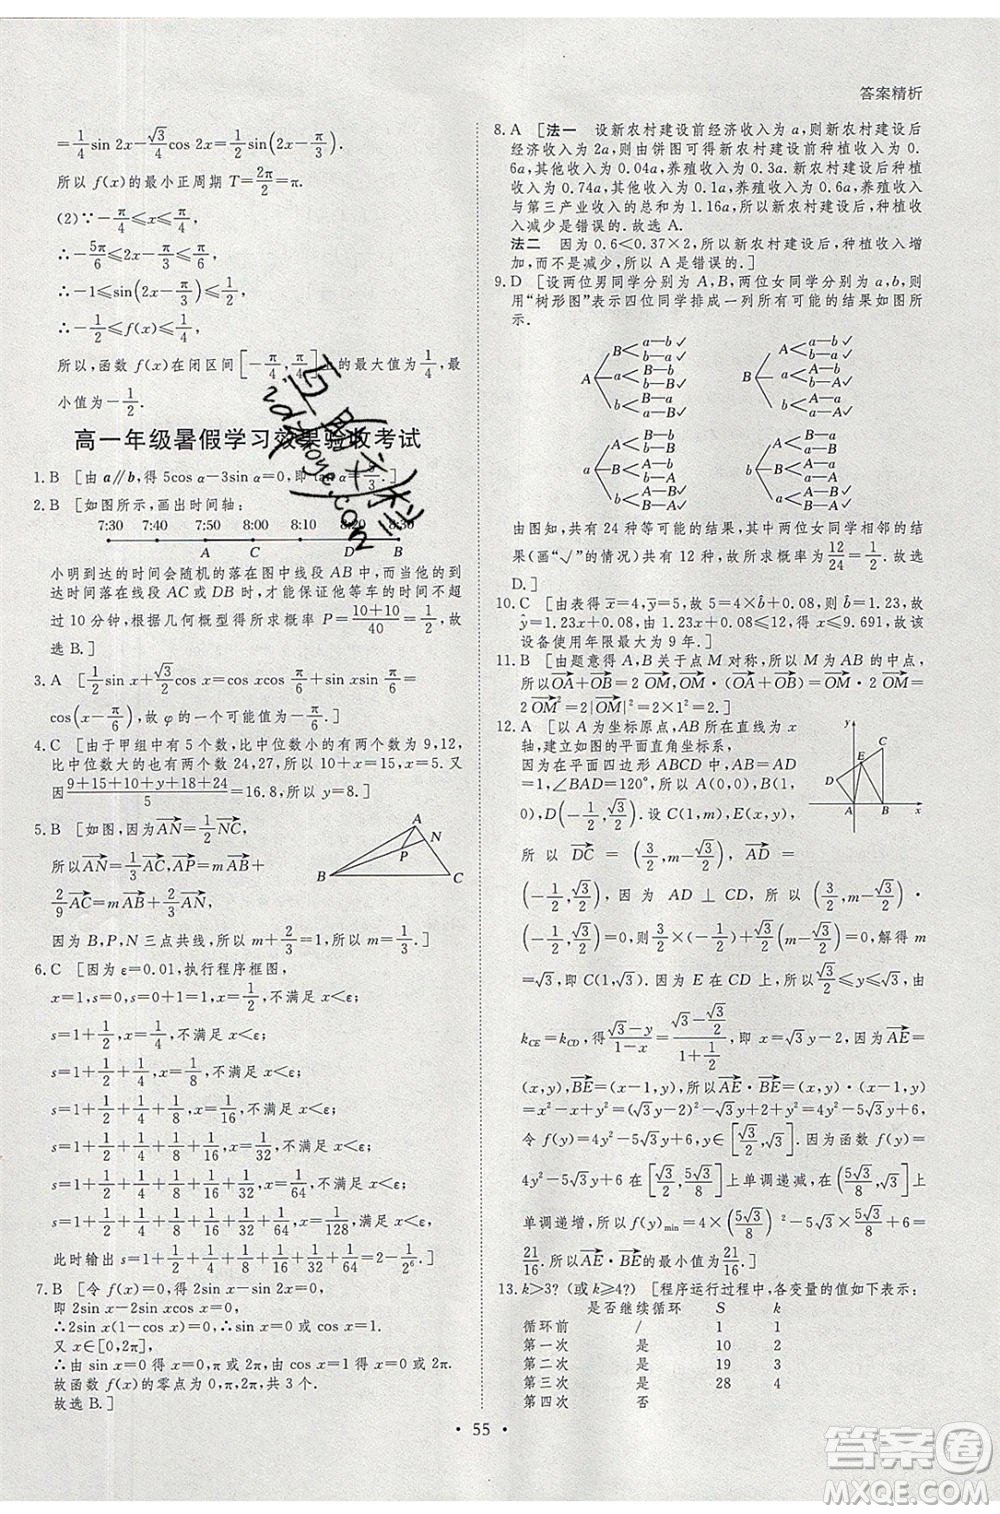 答案精析
=1/4 sin 2x−√3/4 cos 2x=1/2 sin(2x−π/3).
所以 f(x)的最小正周期 T=2π/2=π.
(2)∵−π/4≤x≤π/4,
∴−5π/6≤2x−π/3≤π/6,
∴−1≤sin(2x−π/3)≤1/2,
∴−1/2≤f(x)≤1/4,
所以,函数 f(x)在闭区间[−π/4,π/4]上的最大值为1/4,最
小值为−1/2.
高一年级暑假学习效果验收考试
1.B [由 a∥b,得 5cos α−3sin α=0,即 tan α=5/3.]
2.B [如图所示,画出时间轴:
7:30 7:40 7:50 8:00 8:10 8:20 8:30
A C D B
小明到达的时间会随机的落在图中线段 AB 中,而当他的到
达时间落在线段 AC 或 DB 时,才能保证他等车的时间不超
过 10 分钟,根据几何概型得所求概率 P=(10+10)/40=1/2,故
选 B.]
3.A [1/2 sin x+√3/2 cos x=cos xcos π/6+sin xsin π/6=
cos(x−π/6),故 φ 的一个可能值为 π/6.]
4.C [由于甲组中有 5 个数,比中位数小的有两个数为 9,12,
比中位数大的也有两个数 24,27,所以 10+x=15,x=5.又
因(9+15+10+y+18+24)/5=16.8,所以 y=8.]
5.B [如图,因为AN=1/2 NC,
所以AN=1/3 AC,AP=mAB+
2/9 AC=mAB+2/3 AN,
因为 B,P,N 三点共线,所以 m+2/3=1,所以 m=1/3.]
A N P B C
6.C [因为 ε=0.01,执行程序框图,
x=1,s=0,s=0+1,x=1/2,不满足 x<ε;
s=1+1/2,x=1/4,不满足 x<ε;
s=1+1/2+1/4,x=1/8,不满足 x<ε;
s=1+1/2+1/4+1/8,x=1/16,不满足 x<ε;
s=1+1/2+1/4+1/8+1/16,x=1/32,不满足 x<ε;
s=1+1/2+1/4+1/8+1/16+1/32,x=1/64,不满足 x<ε;
s=1+1/2+1/4+1/8+1/16+1/32+1/64,x=1/128,满足 x<ε,
此时输出 s=1+1/2+1/4+1/8+1/16+1/32+1/64=2−1/2⁶.]
7.B [令 f(x)=0,得 2sin x−sin 2x=0,
即 2sin x−2sin xcos x=0,
∴2sin x(1−cos x)=0,∴sin x=0 或 cos x=1.
又 x∈[0,2π],
∴由 sin x=0 得 x=0,π 或 2π,由 cos x=1 得 x=0 或 2π.
故函数 f(x)的零点为 0,π,2π,共 3 个.
故选 B.]
8.A [法一 设新农村建设前经济收入为 a,则新农村建设后
经济收入为 2a,则由饼图可得新农村建设前种植收入为 0.
6a,其他收入为 0.04a,养殖收入为 0.3a.新农村建设后种植
收入为 0.74a,其他收入为 0.1a,养殖收入为 0.6a,养殖收入
与第三产业收入的总和为 1.16a,所以新农村建设后,种植收
入减少是错误的.故选 A.
法二 因为 0.6<0.37×2,所以新农村建设后,种植收入增加
而不是减少,所以 A 是错误的.]
9.D [设两位男同学分别为 A,B,两位女同学分别为 a,b,则
用“树形图”表示四位同学排成一列所有可能的结果如图所
示.
由图知,共有 24 种等可能的结果,其中两位女同学相邻的结
果(画“√”的情况)共有 12 种,故所求概率为12/24=1/2.故选
D.]
10.C [由表得x̄=4,ȳ=5,故 5=4b̂+0.08,所以b̂=1.23,故
ŷ=1.23x+0.08,由 1.23x+0.08≤10 得 x≤9.691,故该
设备使用年限最大为 9 年.]
11.B [由题意得 A,B 关于点 M 对称,所以 M 为 AB 的中点,
所以OA+OB=2 OM,所以(OA+OB)·OM=2 OM·OM=
2 OM²=2|OM|²=2×1²=2.]
12.A [以 A 为坐标原点,AB 所在直线为 x
轴,建立如图的平面直角坐标系,
因为在平面四边形 ABCD 中,AB=AD
=1,∠BAD=120°,所以 A(0,0),B(1,
0),D(−1/2,√3/2).设 C(1,m),E(x,y),
所以DC=(3/2,m−√3/2),AD=
(−1/2,√3/2),因为 AD⊥CD,所以(3/2,m−√3/2)·
(−1/2,√3/2)=0,则3/2×(−1/2)+√3/2(m−√3/2)=0,解得 m
=√3,即 C(1,√3).因为 E 在 CD 上,所以√3/2≤y≤√3,由
k_CE=k_CD,得(√3−y)/(1−x)=(√3−√3/2)/(1+1/2),即 x=√3y−2,因为AE=
(x,y),BE=(x−1,y),所以AE·BE=(x,y)·(x−1,y)
=x²−x+y²=(√3y−2)²−√3y+2+y²=4y²−5√3y+6,
令 f(y)=4y²−5√3y+6,y∈[√3/2,√3].因为函数 f(y)=
4y²−5√3y+6 在[√3/2,5√3/8]上单调递减,在(5√3/8,√3]上
单调递增,所以 f(y)min=4×(5√3/8)²−5√3×5√3/8+6=
21/16.所以AE·BE的最小值为21/16.]
y C E D A B x
13.k>3?(或 k≥4?) [程序运行过程中,各变量的值如下表示:
是否继续循环 S k
循环前 / 1 1
第一次 是 10 2
第二次 是 19 3
第三次 是 28 4
第四次 否
• 55 •
答案卷